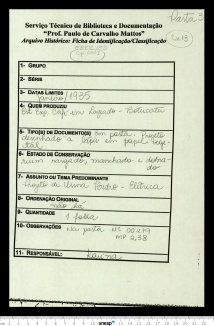 Pasta 3
Serviço Técnico de Biblioteca e Documentação
"Prof. Paulo de Carvalho Mattos"
Arquivo Histórico: Ficha de Identificação/Classificação
1- GRUPO
2- SÉRIE
3- DATAS LIMITES
Janeiro/1935
4- QUEM PRODUZIU
Est. Exp. Café em Lageado - Botucatu
5- TIPO(S) DE DOCUMENTO(S) em pasta. Projeto
desenhado a lápis em papel vege-
tal.
6- ESTADO DE CONSERVAÇÃO
ruim rasgado, manchado e dobra-
do
7- ASSUNTO OU TEMA PREDOMINANTE
Projeto da Usina Hidro-Elétrica
8- ORDENAÇÃO ORIGINAL
não há
9- QUANTIDADE
1 folha
10- OBSERVAÇÕES Na pasta Nº 00279
11- RESPONSÁVEL:
unesp